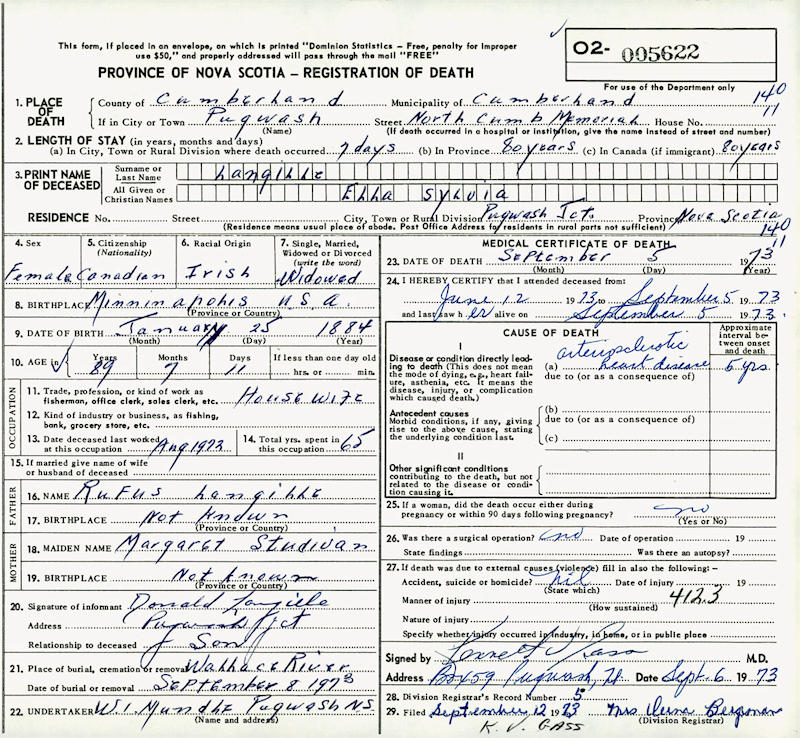 This form, if placed in an envelope, on which is printed "Dominion Statistics – Free, penalty for improper
use $50," and properly addressed will pass through the mail "FREE"
PROVINCE OF NOVA SCOTIA – REGISTRATION OF DEATH
O2- 005622
For use of the Department only
140
11
1. PLACE OF DEATH
County of Cumberland Municipality of Cumberland
If in City or Town Pugwash Street North Cumb Memorial House No.
(Name) (If death occurred in a hospital or institution, give the name instead of street and number)
2. LENGTH OF STAY (in years, months and days)
(a) In City, Town or Rural Division where death occurred 7 days (b) In Province 80 years (c) In Canada (if immigrant) 80 years
3. PRINT NAME OF DECEASED
Surname or Last Name Langille
All Given or Christian Names Ella Sylvia
RESIDENCE No. Street City, Town or Rural Division Pugwash Jct. Province Nova Scotia
(Residence means usual place of abode. Post Office Address for residents in rural parts not sufficient)
140
11
4. Sex Female
5. Citizenship (Nationality) Canadian
6. Racial Origin Irish
7. Single, Married, Widowed or Divorced (write the word) Widowed
8. BIRTHPLACE Minninapolis U.S.A.
(Province or Country)
9. DATE OF BIRTH January 25 1884
(Month) (Day) (Year)
10. AGE in Years 89 Months 7 Days 11 If less than one day old
hrs. or min.
OCCUPATION
11. Trade, profession, or kind of work as fisherman, office clerk, sales clerk, etc. House Wife
12. Kind of industry or business, as fishing, bank, grocery store, etc.
13. Date deceased last worked at this occupation Aug 1973
14. Total yrs. spent in this occupation 65
15. If married give name of wife or husband of deceased
FATHER
16. NAME Rufus Langille
17. BIRTHPLACE Not Known
(Province or Country)
MOTHER
18. MAIDEN NAME Margaret Studivan
19. BIRTHPLACE Not known
(Province or Country)
20. Signature of informant Donald Langille
Address Pugwash Jct
Relationship to deceased Son
21. Place of burial, cremation or removal Wallace River
Date of burial or removal September 8 1973
22. UNDERTAKER W.I. Mundle Pugwash N.S.
(Name and address)
MEDICAL CERTIFICATE OF DEATH
23. DATE OF DEATH September 5 1973
(Month) (Day) (Year)
24. I HEREBY CERTIFY that I attended deceased from:
June 12 1973 to September 5 1973
and last saw h er alive on September 5 1973
CAUSE OF DEATH
Approximate interval between onset and death
I
Disease or condition directly leading to death (This does not mean the mode of dying, e.g., heart failure, asthenia, etc. It means the disease, injury, or complication which caused death.)
(a) arteriosclerotic heart disease 5 yrs.
due to (or as a consequence of)
Antecedent causes
Morbid conditions, if any, giving rise to the above cause, stating the underlying condition last.
(b)
due to (or as a consequence of)
(c)
II
Other significant conditions
contributing to the death, but not related to the disease or condition causing it.
25. If a woman, did the death occur either during pregnancy or within 90 days following pregnancy? no
(Yes or No)
26. Was there a surgical operation? no Date of operation 19
State findings Was there an autopsy?
27. If death was due to external causes (violence) fill in also the following:–
Accident, suicide or homicide? nil Date of injury 19
(State which)
Manner of injury 412.3
(How sustained)
Nature of injury
Specify whether injury occurred in industry, in home, or in public place
Signed by Gass M.D.
Address Box 59 Pugwash, Date Sept. 6 1973
28. Division Registrar's Record Number 5
29. Filed September 12 1973 Mrs Bergman
(Division Registrar)
K. V. GASS